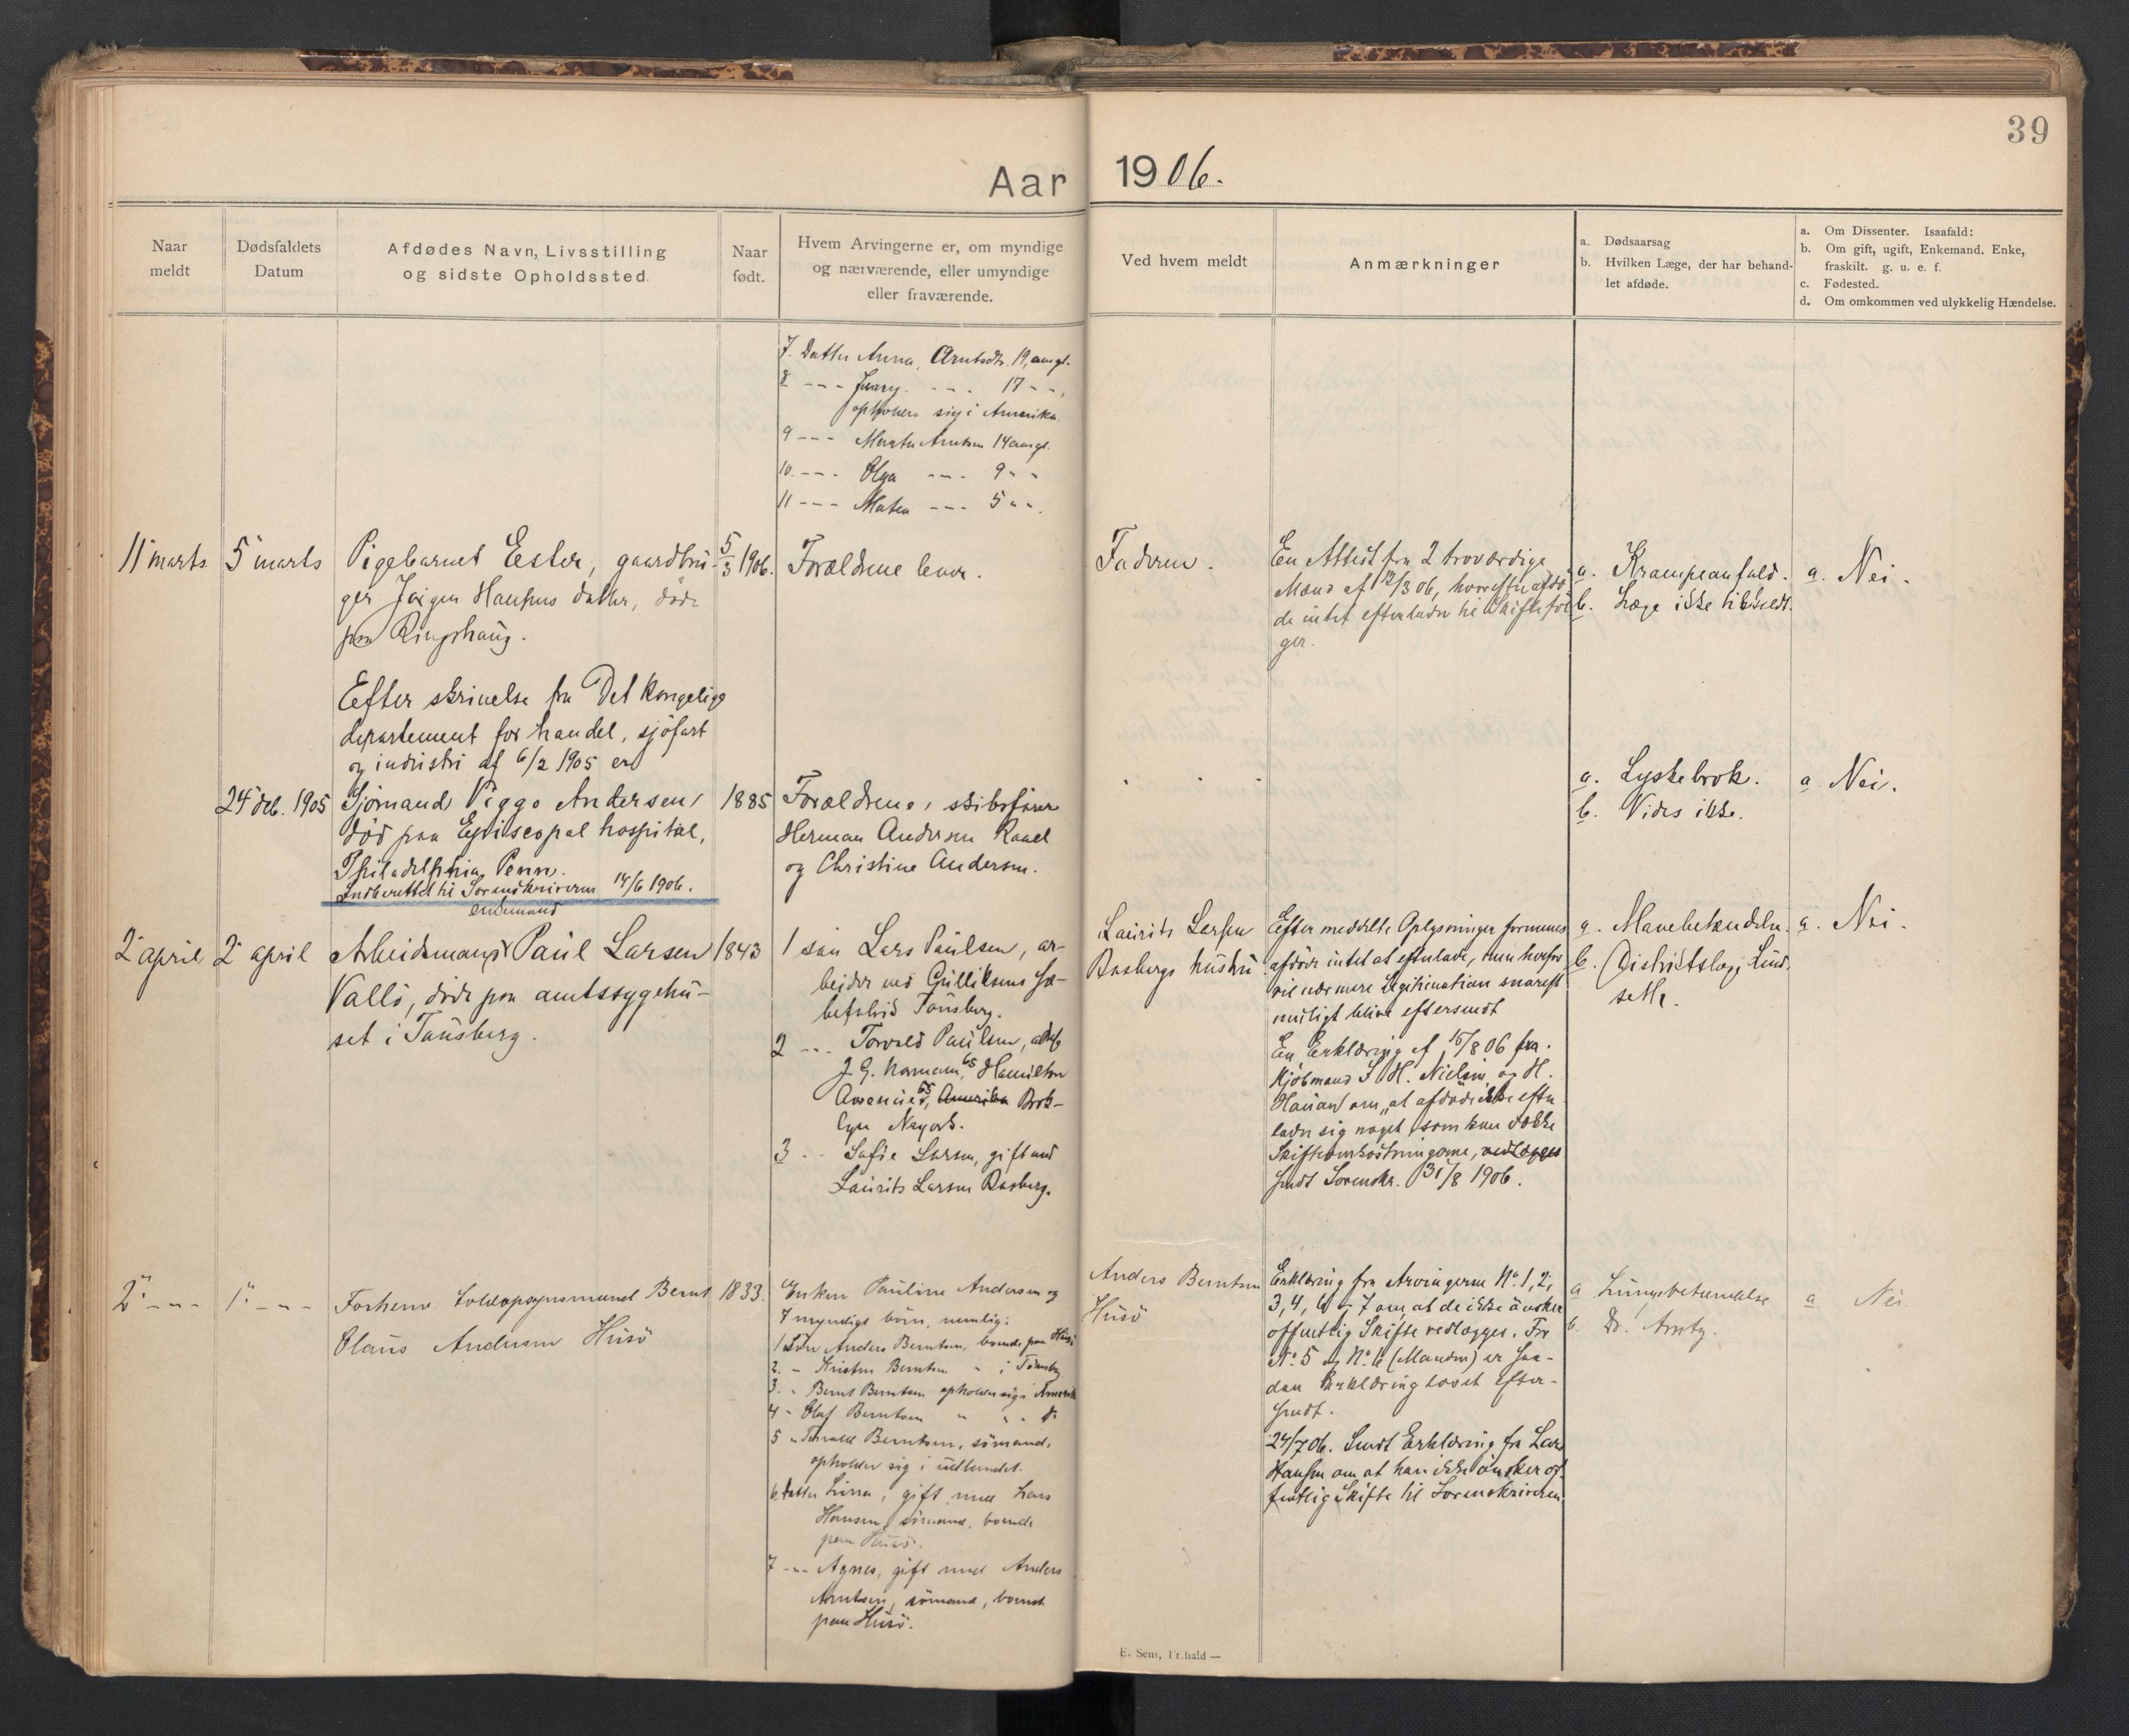 39
Aar 1906.
Naar meldt
Dødsfaldets Datum
Afdødes Navn, Livsstilling
og sidste Opholdssted.
Naar født.
Hvem Arvingerne er, om myndige
og nærværende, eller umyndige
eller fraværende.
Ved hvem meldt
Anmærkninger
a. Dødsaarsag
b. Hvilken Læge, der har behand-
let afdøde.
a. Om Dissenter. Isaafald:
b. Om gift, ugift, Enkemand, Enke,
fraskilt. g. u. e. f.
c. Fødested.
d. Om omkommen ved ulykkelig Hændelse.
7. Datter Anna, Arntsdtr. 19 aar gl.
8 --- --- 17 - -,
opholder sig i Amerika
9 --- Arntsen 14 aar gl.
10. --- Olga --- 9 - -
11 --- Matea --- 5 - -.
11 marts
5 marts
Pigebarnet Ester, gaardbru-
ger Jørgen Hansens datter, døde
paa Ringshaug.
5/3 1906.
Forældrene lever.
Faderen.
En Attest fra 2 troværdige
Mænd af 12/3 06, hvorefter afdø-
de intet efterlader til Skifte føl-
ger.
a. Krampeanfald.
b. Læge ikke tilkaldt.
a. Nei.
Efter skrivelse fra Det kongelige
departement for handel, sjøfart
og industri af 6/2 1905 er
24 deb. 1905
Sjømand Viggo Andersen,
død paa Episcopal hospital,
Philadelphia, Penn.
Indberettet til Sorenskriveren 14/6 1906.
1885
Forældrene, skibsfører
Herman Andersen Kaael
og Christine Andersen.
a. Lyskebrok.
b. Vides ikke.
a Nei.
2 april
2 april
enkemand
Arbeidsmand Paul Larsen
Vallø, døde paa amtssygehu-
set i Tønsberg.
1843
1 søn Lars Paulsen, ar-
beider ved Gulliksens Sæ-
befabrik Tønsberg.
2 -- Torvald Paulsen, adr.
J. G. Namam, 65 Hamilton
65, Amerika Brok-
lyn Neyork.
3 -- Sofie Larsen, gift med
Laurits Larsen Basberg.
Laurits Larsen
Basbergs hustru
Efter meddelte Oplysninger formenes
afdøde intet at efterlade, men herfor
vil nærmere Legitimation snarest
muligt blive eftersendt
En Erklæring af 15/8 06 fra
Kjøbmand S. H. Nielsen og H.
Hauan om, at afdøde ikke efter-
lader sig noget, som kan dække
Skifteomkostningerne, vedlægges
sendt Sorenskr. 31/8 1906.
a. Mavebetændelse.
b. Distriktslæge Lind-
seth.
a. Nei.
2 - - -
1 - - -
Forhenv. Toldopsynsmand Bernt
Olaus Andersen Husø
1833.
Enken Pauline Andersen og
7 myndige børn, nemlig:
1 Søn Anders Berntsen, boende paa Husø
2. - Kristen Berntsen " i Tønsberg
3. - Bernt Berntsen opholder sig i Amerika
4 - Olaf Berntsen " " - do
5 " Torvald Berntsen, sømand,
opholder sig i udlandet.
6. datter Lina, gift med Lars
Hansen, sømand, boende
paa Husø.
7 --- Agnes, gift med Anders
Arntsen, sømand, boende
paa Husø.
Anders Berntsen
Husø
Erklæring fra Arvingerne No. 1, 2,
3, 4, 6 & 7 om, at de ikke ønsker
offentlig Skifte vedlægges. For
No. 5 og No. 6 (Manden) er saa-
dan Erklæring lovet efter-
sendt.
24/7 06. Sendt Erklæring fra Lars
Hansen om at han ikke ønsker of-
fentlig Skifte til Sorenskriveren.
a Lungebetændelse
b. Dr. Arntz.
a Nei.
E. Sem, Fr.hald —